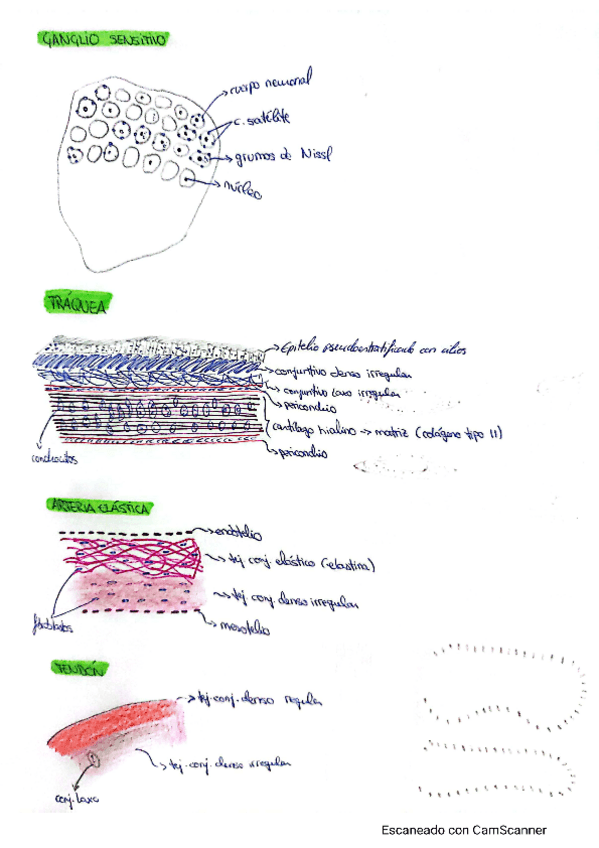 GANGLIO SENSITIVO
cuerpo neuronal
c. satélite
grumos de Nissl
núcleo
TRÁQUEA
Epitelio pseudoestratificado con cilios
conjuntivo denso irregular
conjuntivo laxo irregular
pericondrio
cartílago hialino → matriz (colágeno tipo II)
pericondrio
condrocitos
ARTERIA ELÁSTICA
endotelio
tej conj. elástico (elastina)
tej conj. denso irregular
fibroblastos
mesotelio
TENDÓN
tej. conj. denso regular
tej. conj. denso irregular
conj. laxo
Escaneado con CamScanner